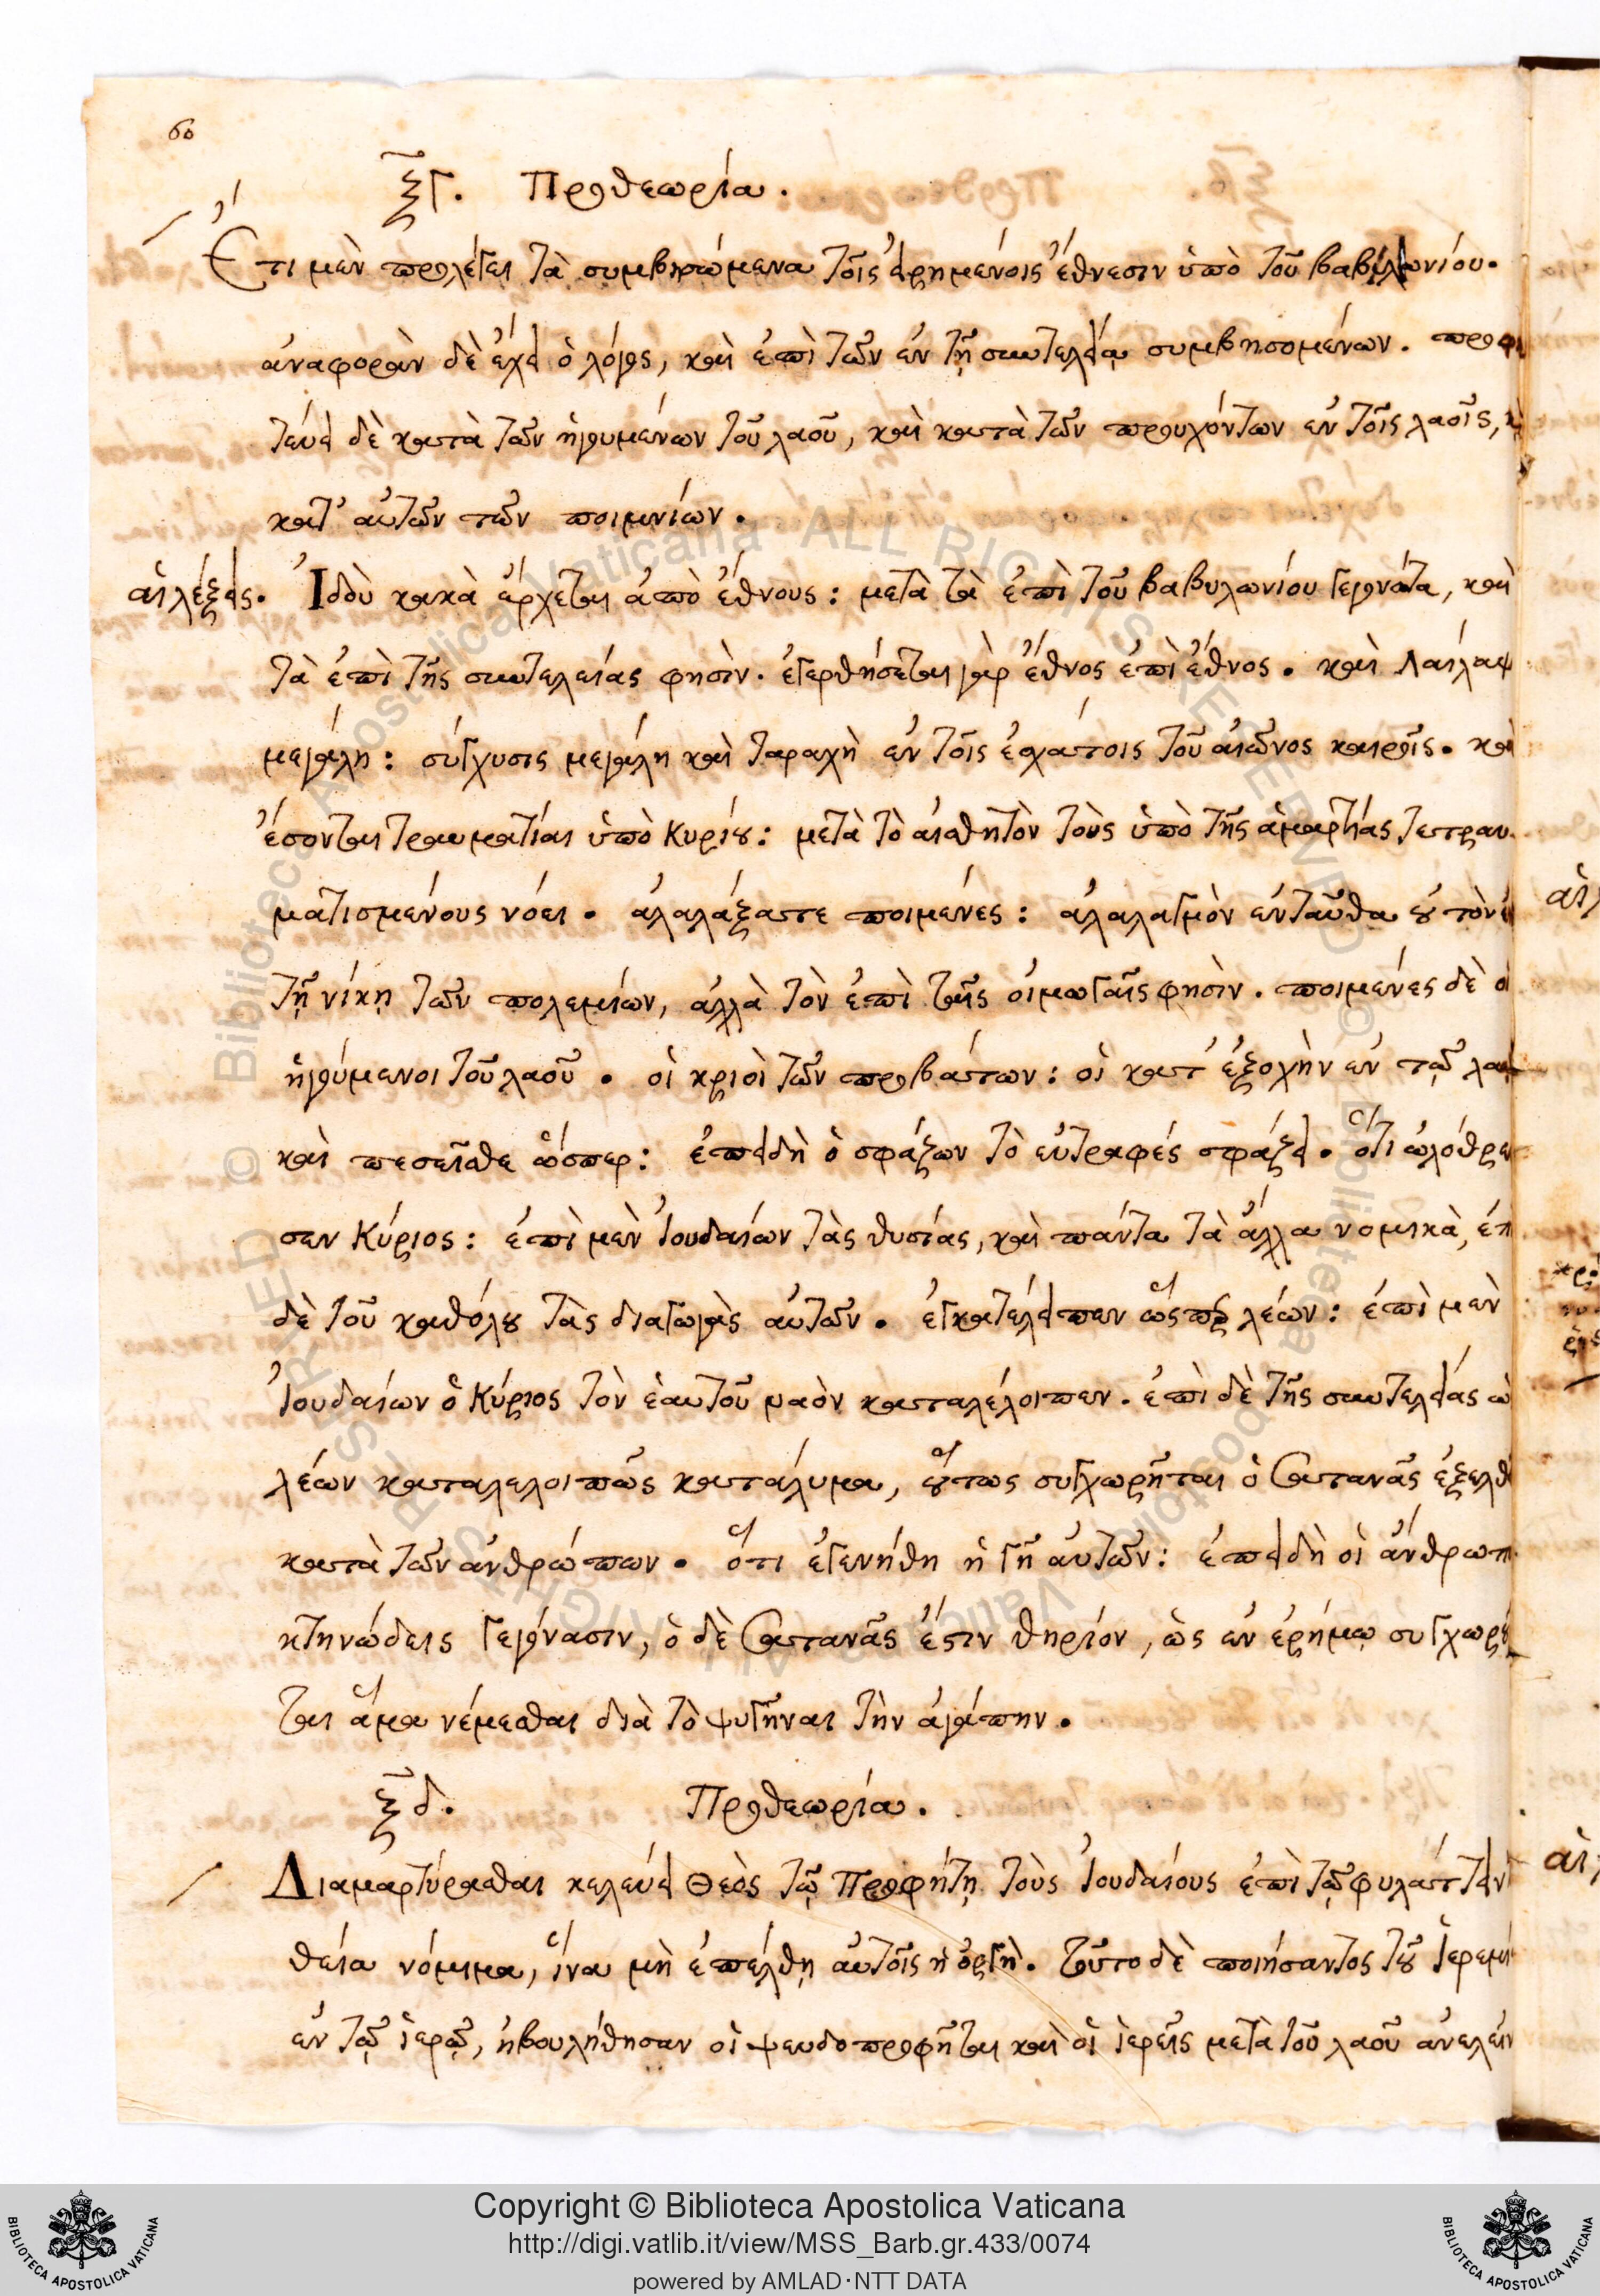 60
ξγ. Προθεωρία.
Ἔτι μὲν προλέγει τὰ συμβησόμενα τοῖς εἰρημένοις ἔθνεσιν ὑπὸ τοῦ βαβυλωνίου.
ἀναφορὰν δὲ ἔχει ὁ λόγος, καὶ ἐπὶ τῶν ἐν τῇ συντελείᾳ συμβησομένων. προφη
τεύει δὲ κατὰ τῶν ἡγουμένων τοῦ λαοῦ, καὶ κατὰ τῶν προυχόντων ἐν τοῖς λαοῖς,
κατ' αὐτῶν τῶν ποιμνίων.
αἱ λέξεις. Ἰδοὺ κακὰ ἔρχεται ἀπὸ ἔθνους: μετὰ τὰ ἐπὶ τοῦ βαβυλωνίου γεγονότα, καὶ
τὰ ἐπὶ τῆς συντελείας φησίν. ἐγερθήσεται γὰρ ἔθνος ἐπὶ ἔθνος. καὶ Λαῖλαψ
μεγάλη: σύγχυσις μεγάλη καὶ ταραχὴ ἐν τοῖς ἐσχάτοις τοῦ αἰῶνος καιροῖς. καὶ
ἔσονται τραυματίαι ὑπὸ Κυρίου: μετὰ τὸ αἰσθητὸν τοὺς ὑπὸ τῆς ἁμαρτίας τετραυ
ματισμένους νόει. ἀλαλάξατε ποιμένες: ἀλαλαγμὸν ἐνταῦθα οὐ τὸν
τῇ νίκῃ τῶν πολεμίων, ἀλλὰ τὸν ἐπὶ ταῖς οἰμωγαῖς φησίν. ποιμένες δὲ οἱ
ἡγούμενοι τοῦ λαοῦ. οἱ κριοὶ τῶν προβάτων: οἱ κατ' ἐξοχὴν ἐν τῷ λαῷ
καὶ πεσεῖσθε ὥσπερ: ἐπειδὴ ὁ σφάζων τὸ εὐτραφές σφάζει. ὅτι ὠλόθρευ
σεν Κύριος: ἐπὶ μὲν Ἰουδαίων τὰς θυσίας, καὶ πάντα τὰ ἄλλα νομικὰ, ἐπ
δὲ τοῦ καθόλου τὰς διαγωγὰς αὐτῶν. ἐγκατέλειπεν ὥσπερ λέων: ἐπὶ μὲν
Ἰουδαίων ὁ Κύριος τὸν ἑαυτοῦ ναὸν καταλέλοιπεν. ἐπὶ δὲ τῆς συντελείας ὡ
λέων καταλελοιπὼς κατάλυμα, οὕτως συγχωρῆται ὁ Σατανᾶς ἐξελθ
κατὰ τῶν ἀνθρώπων. ὅτι ἐγενήθη ἡ γῆ αὐτῶν: ἐπειδὴ οἱ ἄνθρωπ
κτηνώδεις γεγόνασιν, ὁ δὲ Σατανᾶς ἐστιν θηρίον, ὡς ἐν ἐρήμῳ συγχωρεῖ
ται ἅμα νέμεσθαι διὰ τὸ ψυγῆναι τὴν ἀγάπην.
ξδ. Προθεωρία.
Διαμαρτύρασθαι κελεύει Θεὸς τῷ Προφήτῃ τοὺς Ἰουδαίους ἐπὶ τῷ φυλάττειν
θεῖα νόμιμα, ἵνα μὴ ἐπέλθῃ αὐτοῖς ἡ ὀργή. Τοῦτο δὲ ποιήσαντος τοῦ Ἱερεμί
ἐν τῷ ἱερῷ, ἠβουλήθησαν οἱ ψευδοπροφῆται καὶ οἱ ἱερεῖς μετὰ τοῦ λαοῦ ἀνελεῖν
© Biblioteca Apostolica Vaticana ALL RIGHTS RESERVED
Copyright © Biblioteca Apostolica Vaticana
http://digi.vatlib.it/view/MSS_Barb.gr.433/0074
powered by AMLAD·NTT DATA
BIBLIOTECA APOSTOLICA VATICANA
BIBLIOTECA APOSTOLICA VATICANA